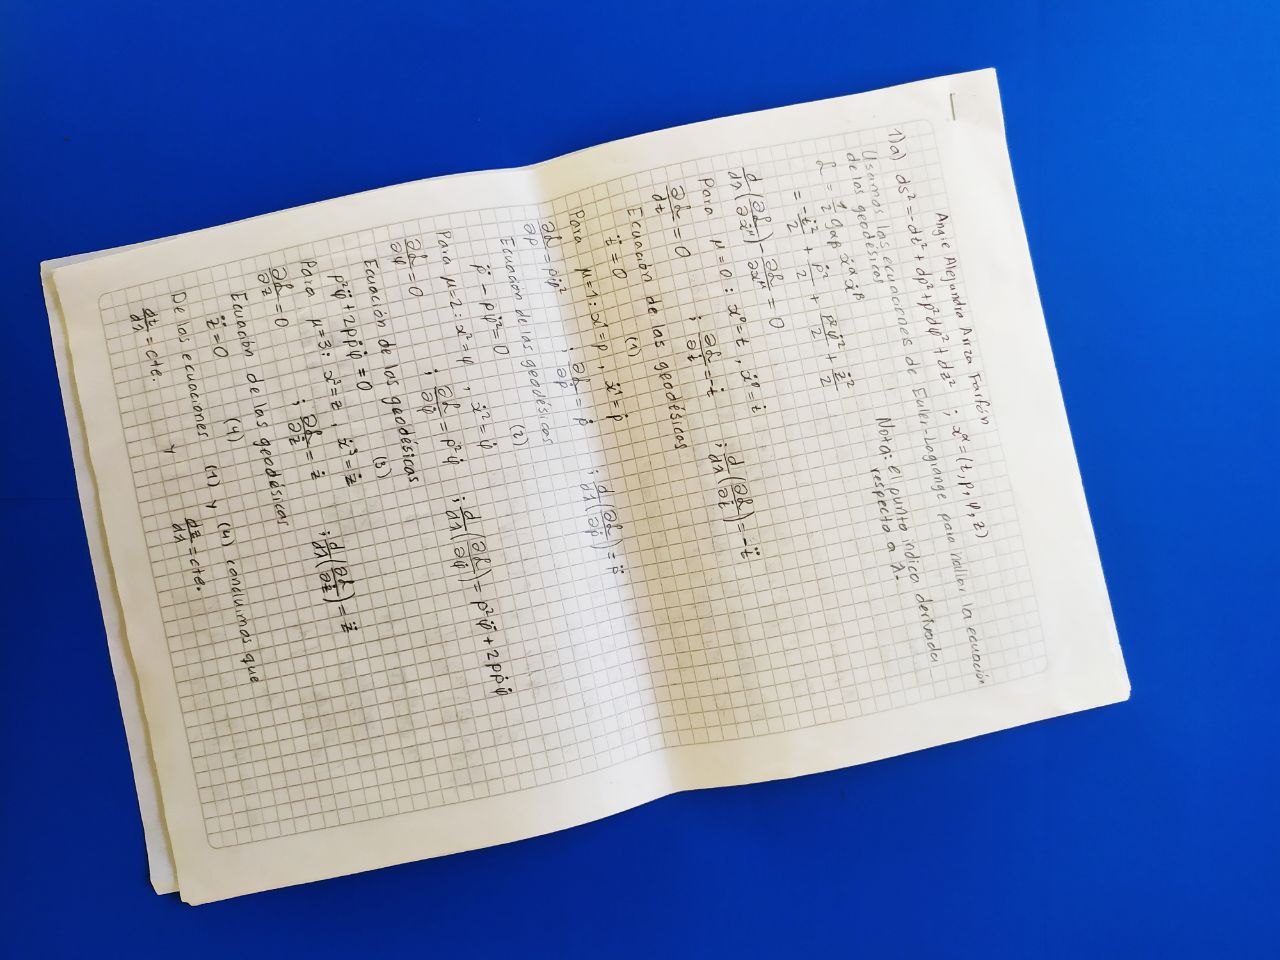 Angie Alejandra Ariza Farfán
1) a) ds² = -dt² + dρ² + ρ²dφ² + dz² ; xᵅ = (t, ρ, φ, z)
Usamos las ecuaciones de Euler-Lagrange para hallar la ecuación
de las geodésicas
ℒ = 1/2 gαβ ẋᵅ ẋᵝ
Nota: el punto indica derivada
respecto a λ.
= -ṫ²/2 + ρ̇²/2 + ρ²φ̇²/2 + ż²/2
d/dλ (∂ℒ/∂ẋᵘ) - ∂ℒ/∂xᵘ = 0
Para μ=0 : x⁰ = t , ẋ⁰ = ṫ
∂ℒ/∂t = 0 ; ∂ℒ/∂ṫ = -ṫ ; d/dλ (∂ℒ/∂ṫ) = -ẗ
Ecuación de las geodésicas
ẗ = 0 (1)
Para μ=1 : x¹ = ρ , ẋ¹ = ρ̇
∂ℒ/∂ρ = ρφ̇² ; ∂ℒ/∂ρ̇ = ρ̇ ; d/dλ (∂ℒ/∂ρ̇) = ρ̈
Ecuación de las geodésicas
ρ̈ - ρφ̇² = 0 (2)
Para μ=2 : x² = φ , ẋ² = φ̇
∂ℒ/∂φ = 0 ; ∂ℒ/∂φ̇ = ρ²φ̇ ; d/dλ (∂ℒ/∂φ̇) = ρ²φ̈ + 2ρρ̇φ̇
Ecuación de las geodésicas
ρ²φ̈ + 2ρρ̇φ̇ = 0 (3)
Para μ=3 : x³ = z , ẋ³ = ż
∂ℒ/∂z = 0 ; ∂ℒ/∂ż = ż ; d/dλ (∂ℒ/∂ż) = z̈
Ecuación de las geodésicas
z̈ = 0 (4)
De las ecuaciones (1) y (4) concluimos que
dt/dλ = cte. y dz/dλ = cte.